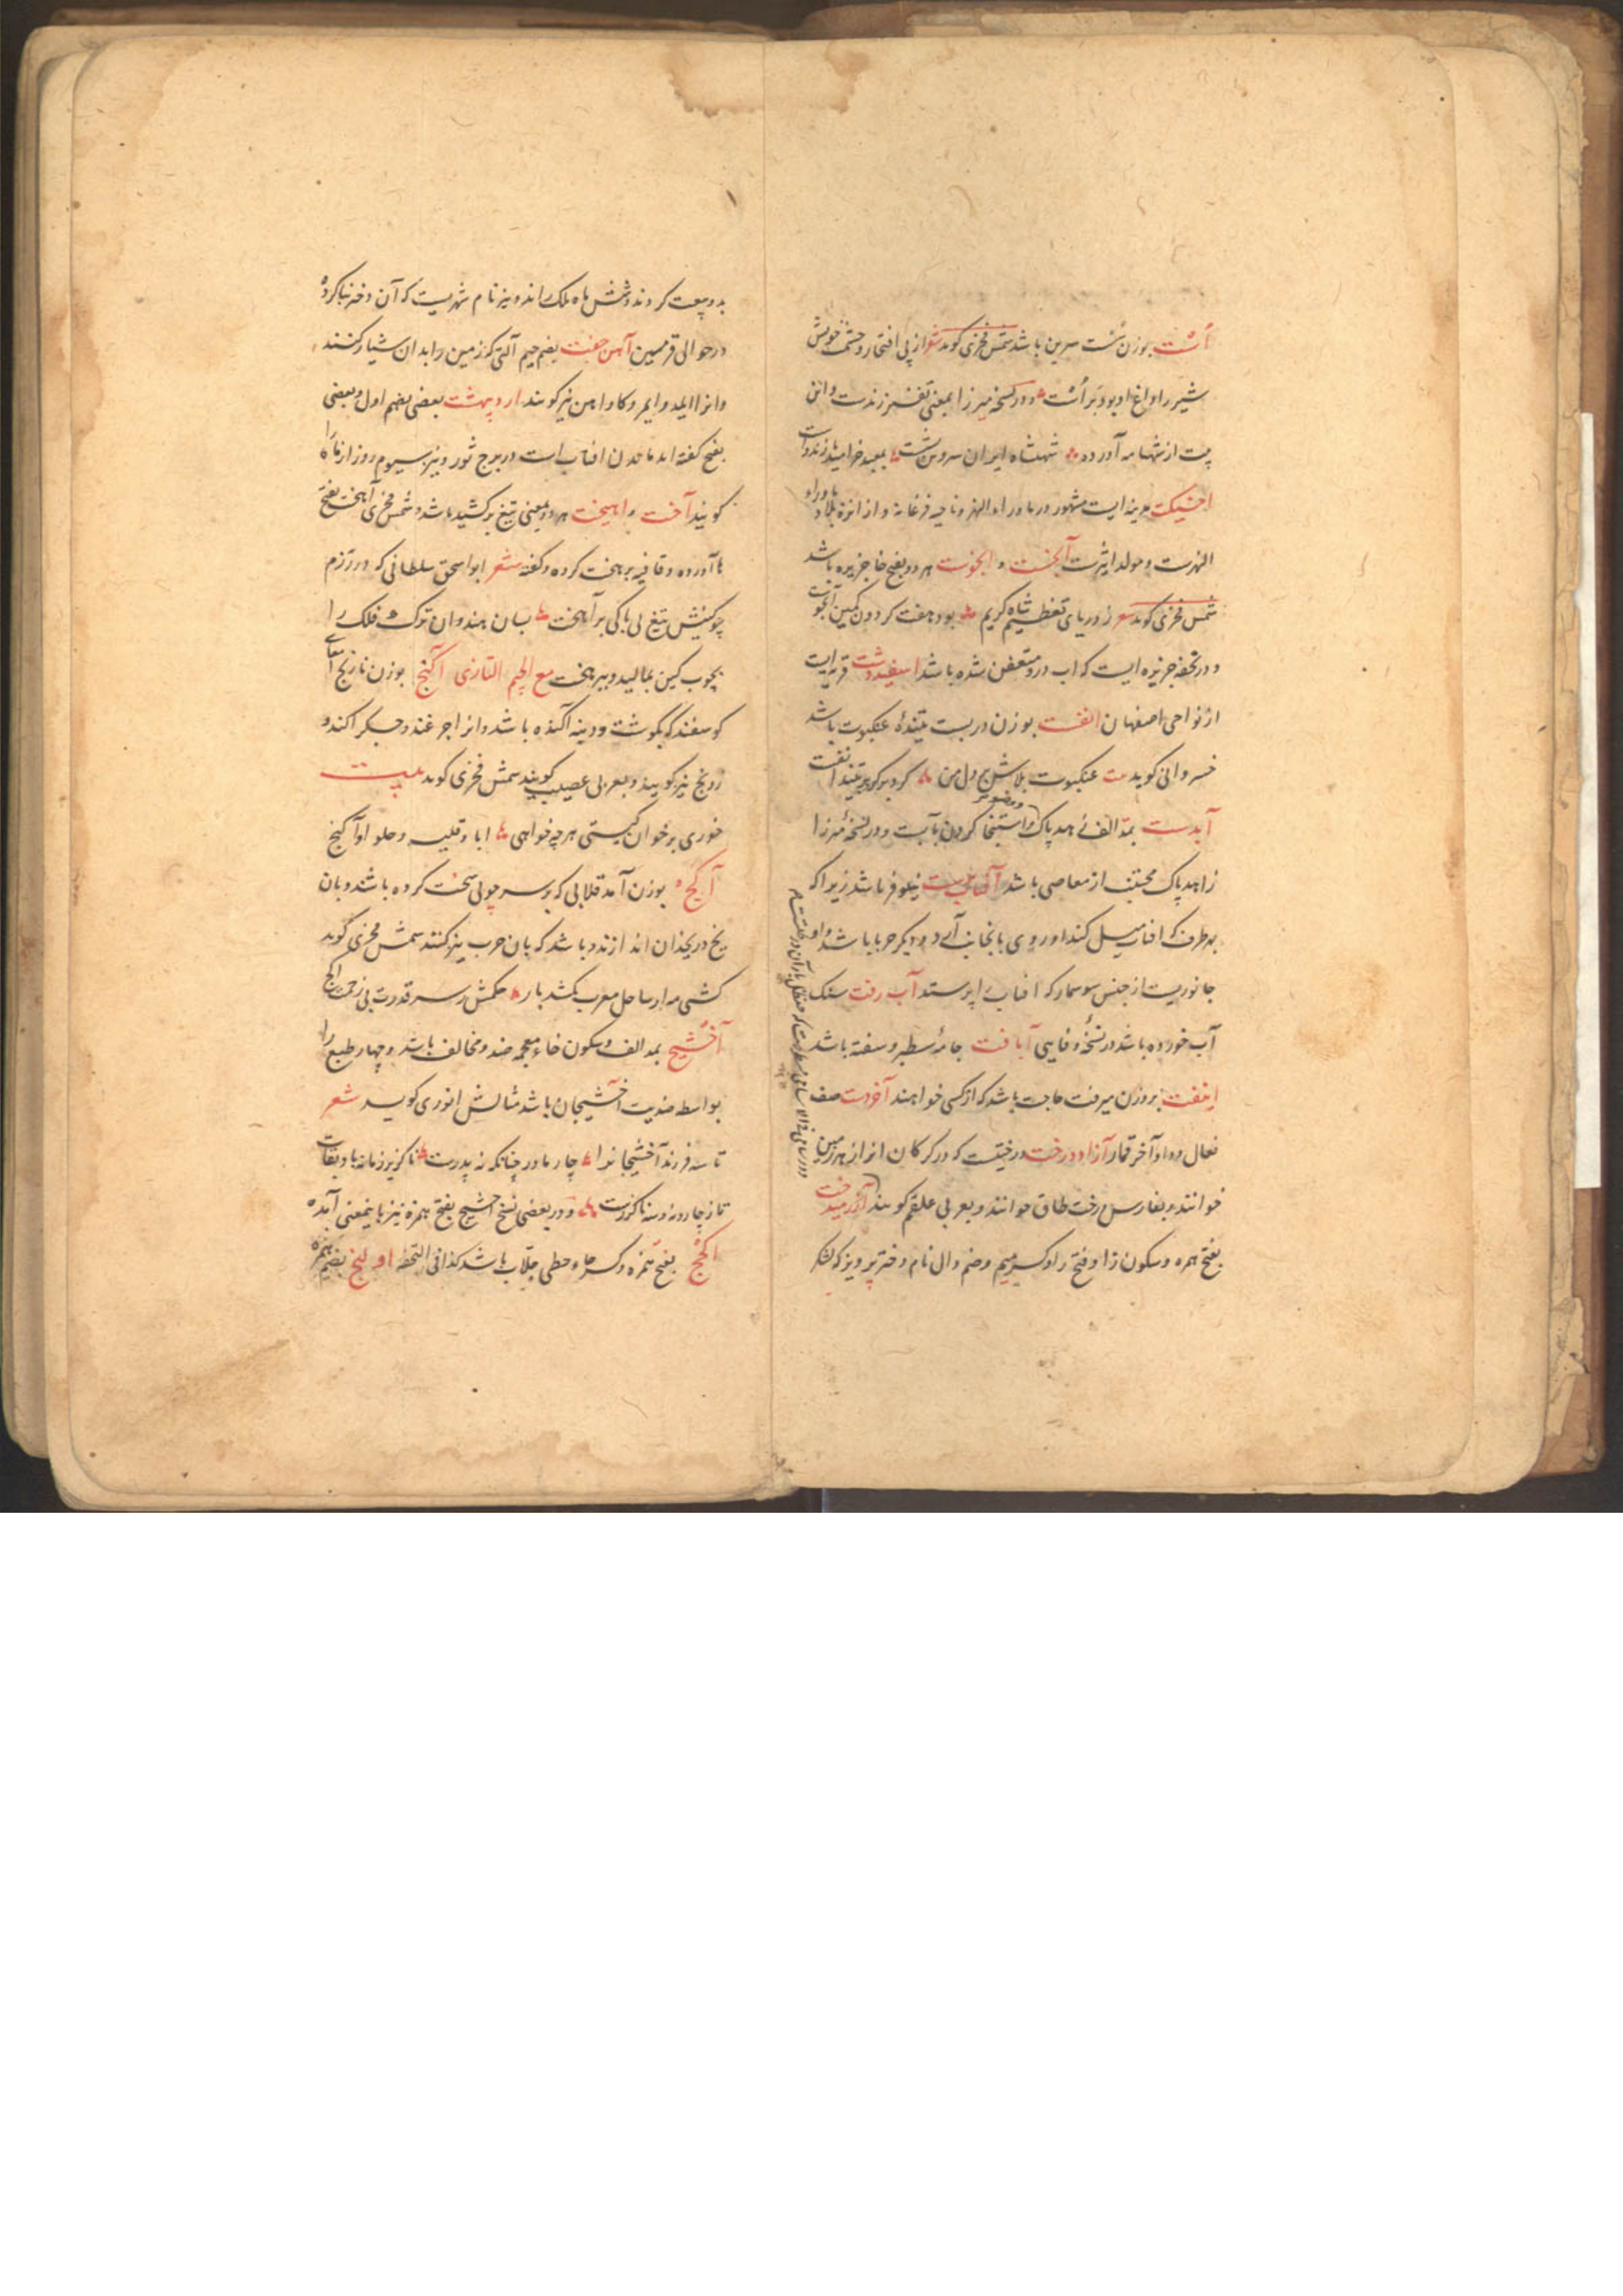 اُست بوزن سُست سرین باشد شمس فخری کوید شعر از پی افتخار و حشمت خویش
شیر را داغ او بود بر اُست و در نسخه میرزا بمعنی تفسیر زندست و این
بیت از شهنامه آورده شهنشاه ایران سر و تن بشست بمعبد خرامید با زند و است
اخسیکت مدینه ایست مشهور در ماوراء النهر و ناحیه فرغانه و از انزه بلاد ماوراء
النهرست و مولد اثیرست آبخست و ابخوست هر دو بفتح خا جزیره باشد
شمس فخری کوید شعر ز دریای تعظیم شاه کریم بود هفت کردون کمین آبخوست
و در تحفه جزیره ایست که اب درو متعفن شده باشد اسفیددشت قریه ایست
از نواحی اصفهان انفست بوزن دربست تنیدهٔ عنکبوت باشد
خسروانی کوید بیت عنکبوت بلاش بر دل من کرد بر کرد بر تنید انفست
آبدست بمد الف زاهد پاک و استنجا کردن بآبست و در نسخهٔ میرزا
زاهد پاک مجتنب از معاصی باشد آفتاب پرست نیلوفر باشد زیرا که
بهر طرف که افتاب میل کند او روی بانجانب آرد و دیکر حربا باشد و او
جانوریست از جنس سوسمار که افتاب را پرستد آب رفت سنک
آب خورده باشد در نسخهٔ وفایی آبافت جامهٔ سطبر و سفته باشد
ایفت بروزن میرفت حاجت باشد که از کسی خواهند آخردست صف
نعال و داو آخر قمار آزاد درخت درختیست که در کرکان انرا زهر زمین
خوانند و بفارسی درخت طاق خوانند و بعربی علقم کویند آزرمیدخت
بفتح همزه و سکون زا و فتح را و کسر میم و ضم دال نام دختر پرویز که لشکر
بدو بیعت کردند و شش ماه ملک راند و نیز نام شهریست که آن دختر بنا کرده
در حوالی قرمیسین آهن جفت بضم جیم آلتی که زمین را بدان شیار کنند
و انرا ایلد و ایمر و کاواهن نیز کویند اردیبهشت بعضی بضم اول و بعضی
بفتح کفته اند ماندن افتاب است در برج ثور و نیز سیوم روز از ماه را
کویند آخت و اهیخت هر دو بمعنی تیغ برکشید باشد و شمس فخری آهخت بفتح
ها آورده و قافیه بر بخت کرده و کفته شعر ابو اسحق سلطانی که در رزم
چو کینش تیغ بی باکی بر آهخت بسان هندوان ترک فلک را
بچوب کین بمالید و بر آهخت مع الجیم التازی آکنج بوزن نارنج امعای
کوسفند که بکوشت و دنبه آکنده باشد و انرا چرغند و جکر اکند و
زونج نیز کویند و بعربی عصیب کویند شمس فخری کوید بیت
خوری بر خوان کیستی هر چه خواهی ابا و قلیه و حلوا و آکنج
آکج بوزن آمد قلابی که بر سر چوبی سخت کرده باشند و بان
یخ در یخدان اندازند و باشد که بان حرب نیز کنند شمس فخری کوید
کشتی مه از ساحل مغرب بکشد بار حکمش بسر قدرت بی زحمت آکج
آخشیج بمد الف و سکون خاء معجمه ضد و مخالف باشد و چهار طبع را
بواسطه ضدیت آخشیجان باشد مثالش انوری کوید شعر
تا سه فرزند آخشیجانرا چار مادر چنانکه نه پدرست ناکزیر زمانه باد بقات
تا ز چار و نه و سه ناکزرست و در بعضی نسخ اخشیج بفتح همزه نیز باینمعنی آمده
اکحج بفتح همزه و کسر حاء حطی جلاب باشد کذا فی التحفه اولنج بضم همزه